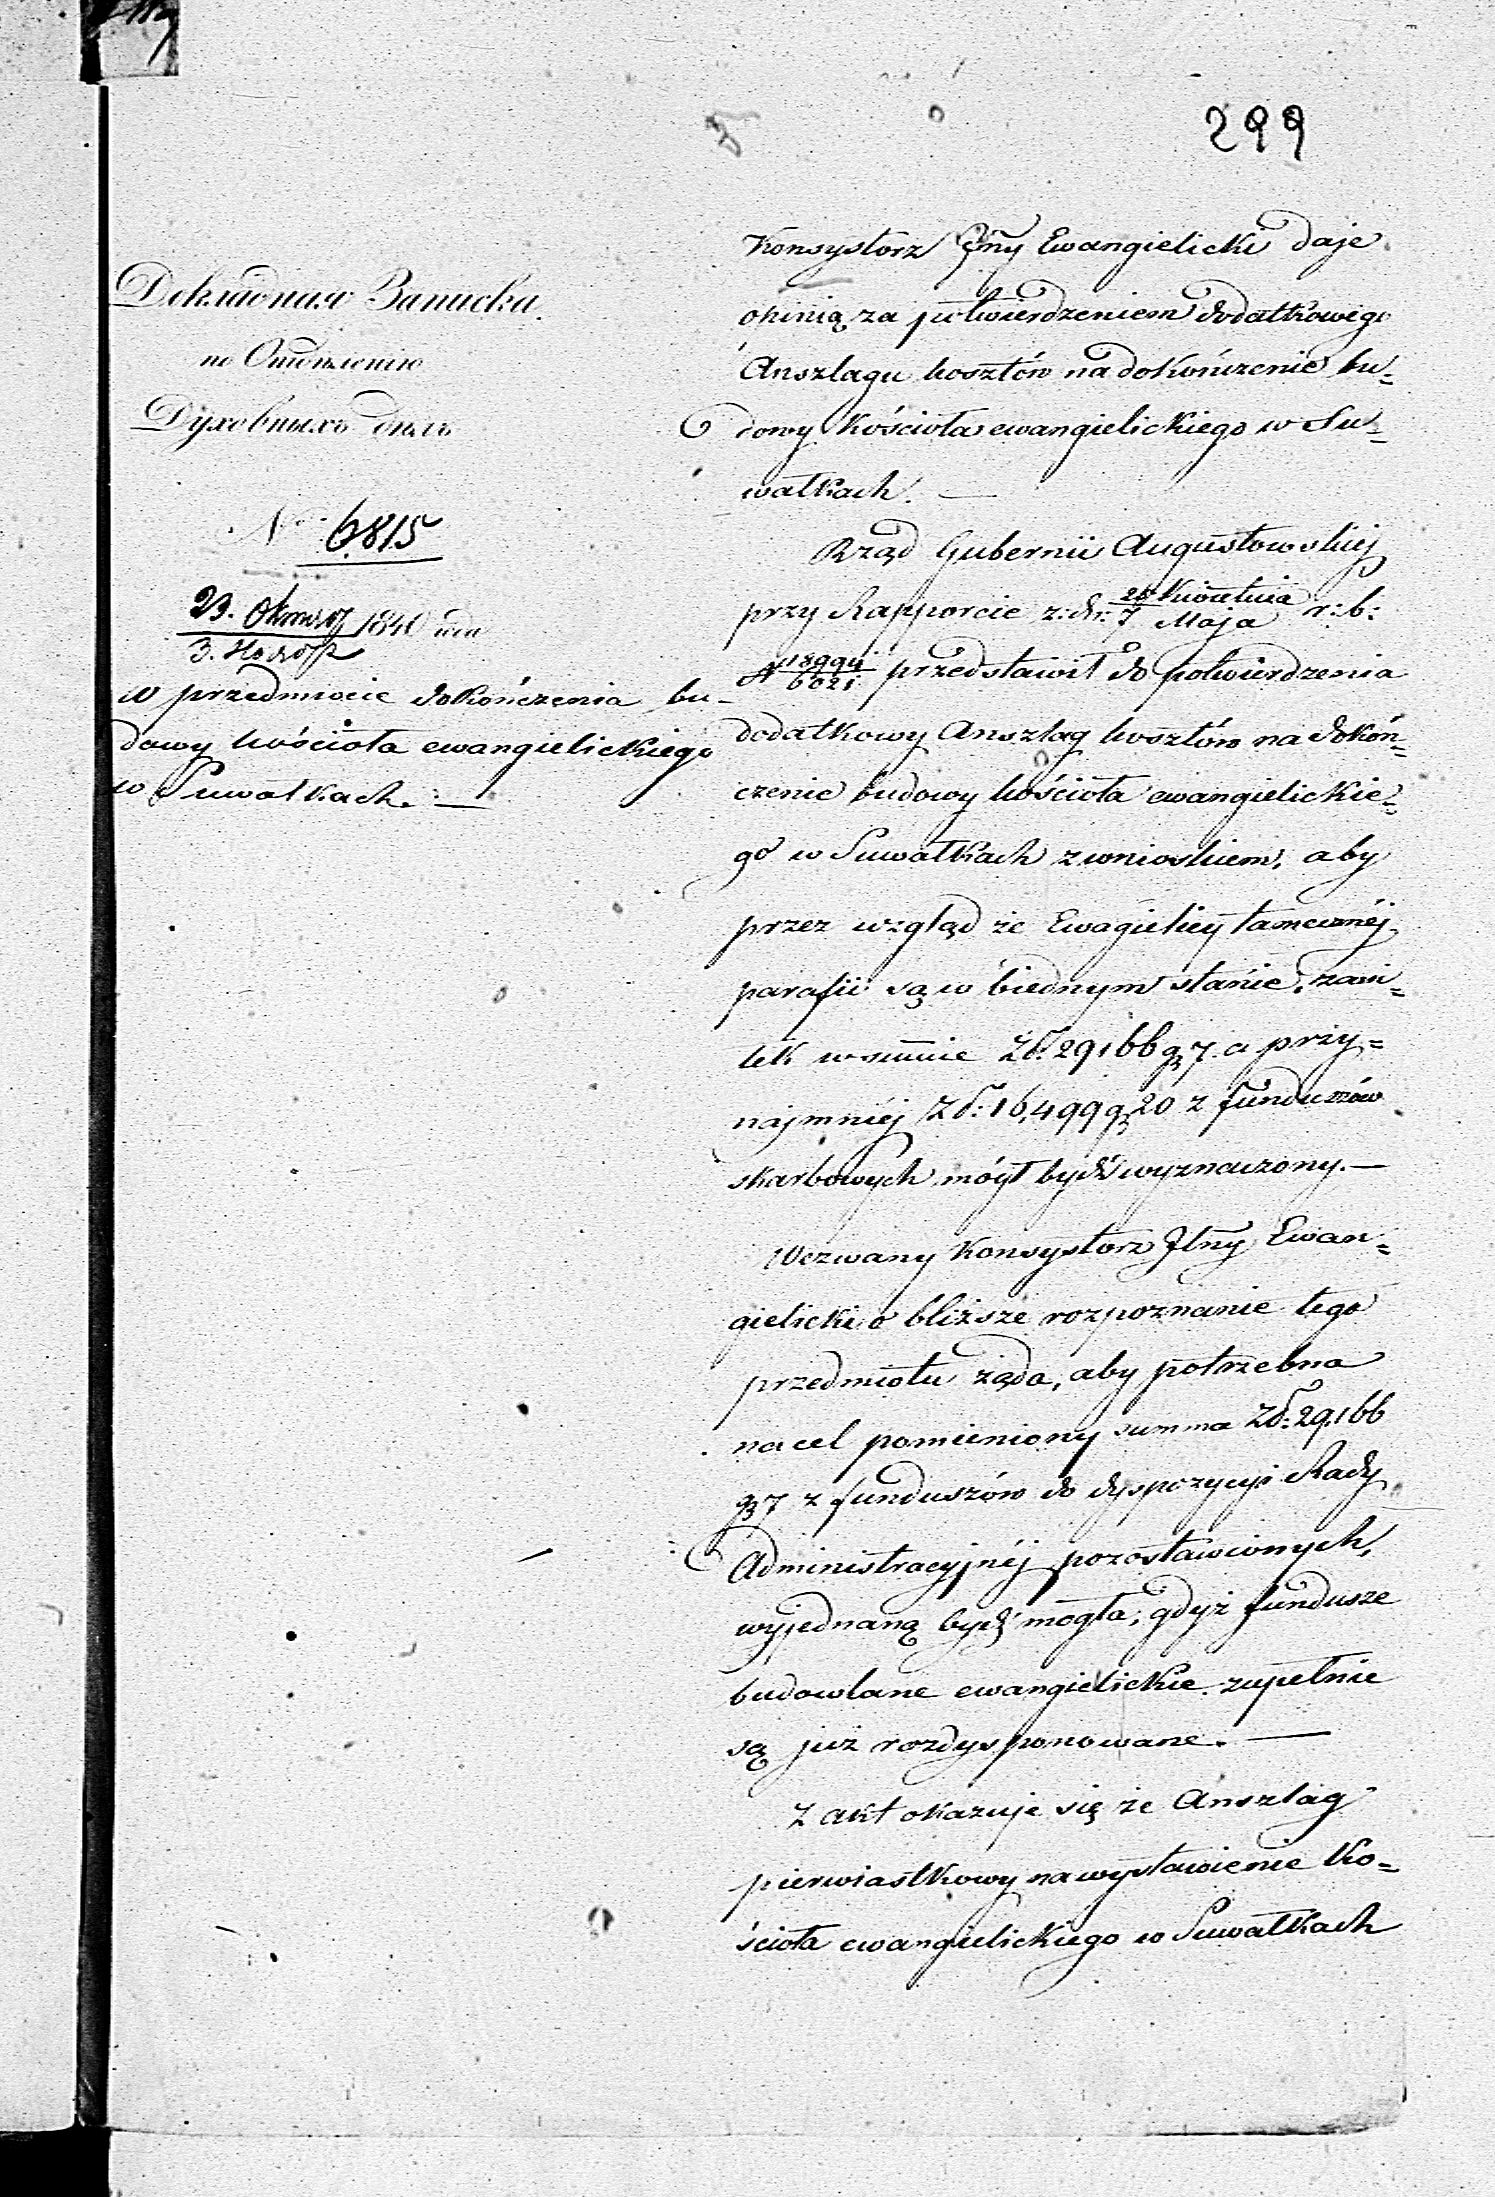 299
Докладная Записка
по Отдѣленію
Духовныхъ дѣлъ
№ 6815
23. Октяб 1840 года
3. Нояб
w przedmiocie dokończenia bu-
dowy kościoła ewangielickiego
w Suwałkach. —
Konsystorz Jlny Ewangielicki daje
opinią za potwierdzeniem dodatkowego
Anszlagu kosztów na dokończenie bu-
dowy kościoła ewangielickiego w Su-
wałkach. —
Rząd Gubernii Augustowskiej
przy Rapporcie z: dn: 25 Kwietnia / 7 Maja r: b:
N 18994/6021 przedstawił do potwierdzenia
dodatkowy Anszlag kosztów na dokoń-
czenie budowy kościoła ewangielickie-
go w Suwałkach z wnioskiem, aby
przez wzgląd że Ewagielicy tamecznéj
parafii są w biednym stanie, zasi-
łek w summie Zł: 29,166 gr 7. a przy=
najmniéj Zł: 16,499 gr 20 z funduszów
skarbowych mógł bydź wyznaczony. —
Wezwany Konsystorz Jlny Ewan=
gielicki o bliższe rozpoznanie tego
przedmiotu żąda, aby potrzebna
na cel pomieniony summa Zł: 29,166
gr 7 z funduszów do dyspozycyi Rady
Administracyjnéj pozostawionych,
wyjednaną bydź mogła; gdyż fundusze
budowlane ewangielickie zupełnie
są już rozdysponowane. —
Z akt okazuje się że Anszlag
pierwiastkowy na wystawienie Ko=
ścioła ewangielickiego w Suwałkach